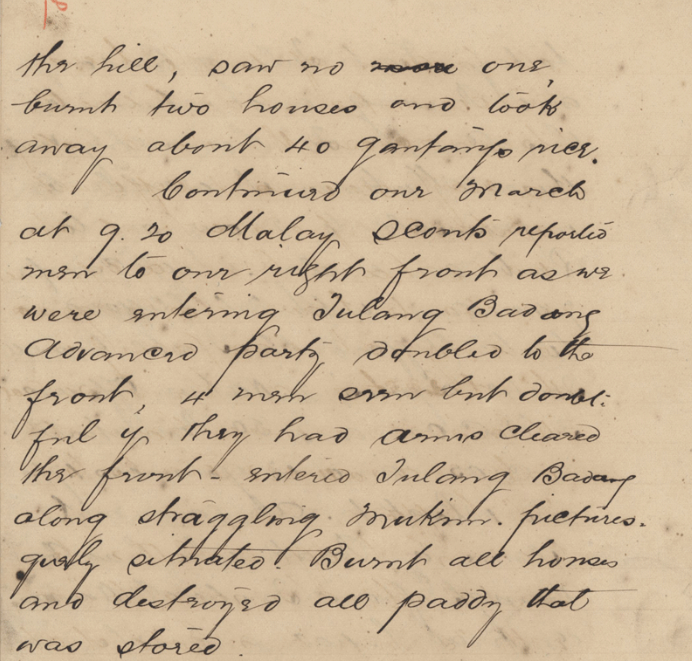 the hill, saw no one,
burnt two houses and took
away about 40 gantangs rice.
Continued our March
at 9.20 Malay Scouts reported
men to our right front as we
were entering Tulang Badang
Advanced party doubled to the
front, 4 men seen but doubt-
ful if they had arms cleared
the front - entered Tulang Badang
along straggling Mukim. pictures-
quely situated. Burnt all houses
and destroyed all paddy that
was stored.